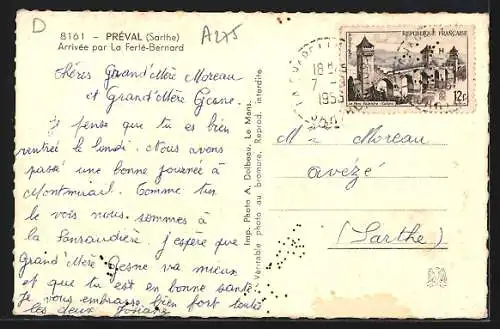 D
A275
8161 - PRÉVAL (Sarthe)
Arrivée par La Ferté-Bernard
Chères Grand'Mère Moreau
et Grand'Mère Gesne.
Je pense que tu es bien
rentrée le lundi. Nous avons
passé une bonne journée à
Montmirail. Comme tu
le vois nous sommes à
la j'espère que
Grand'Mère Gesne va mieux
et que tu est en bonne santé.
Je vous embrasse bien fort toutes
les deux Josiane
Imp. Photo A. Dolbeau, Le Mans.
Véritable photo au bromure. Reprod. interdite
REPUBLIQUE FRANÇAISE
12F
18
7 -
195
Mme Moreau
avézé
(Sarthe)